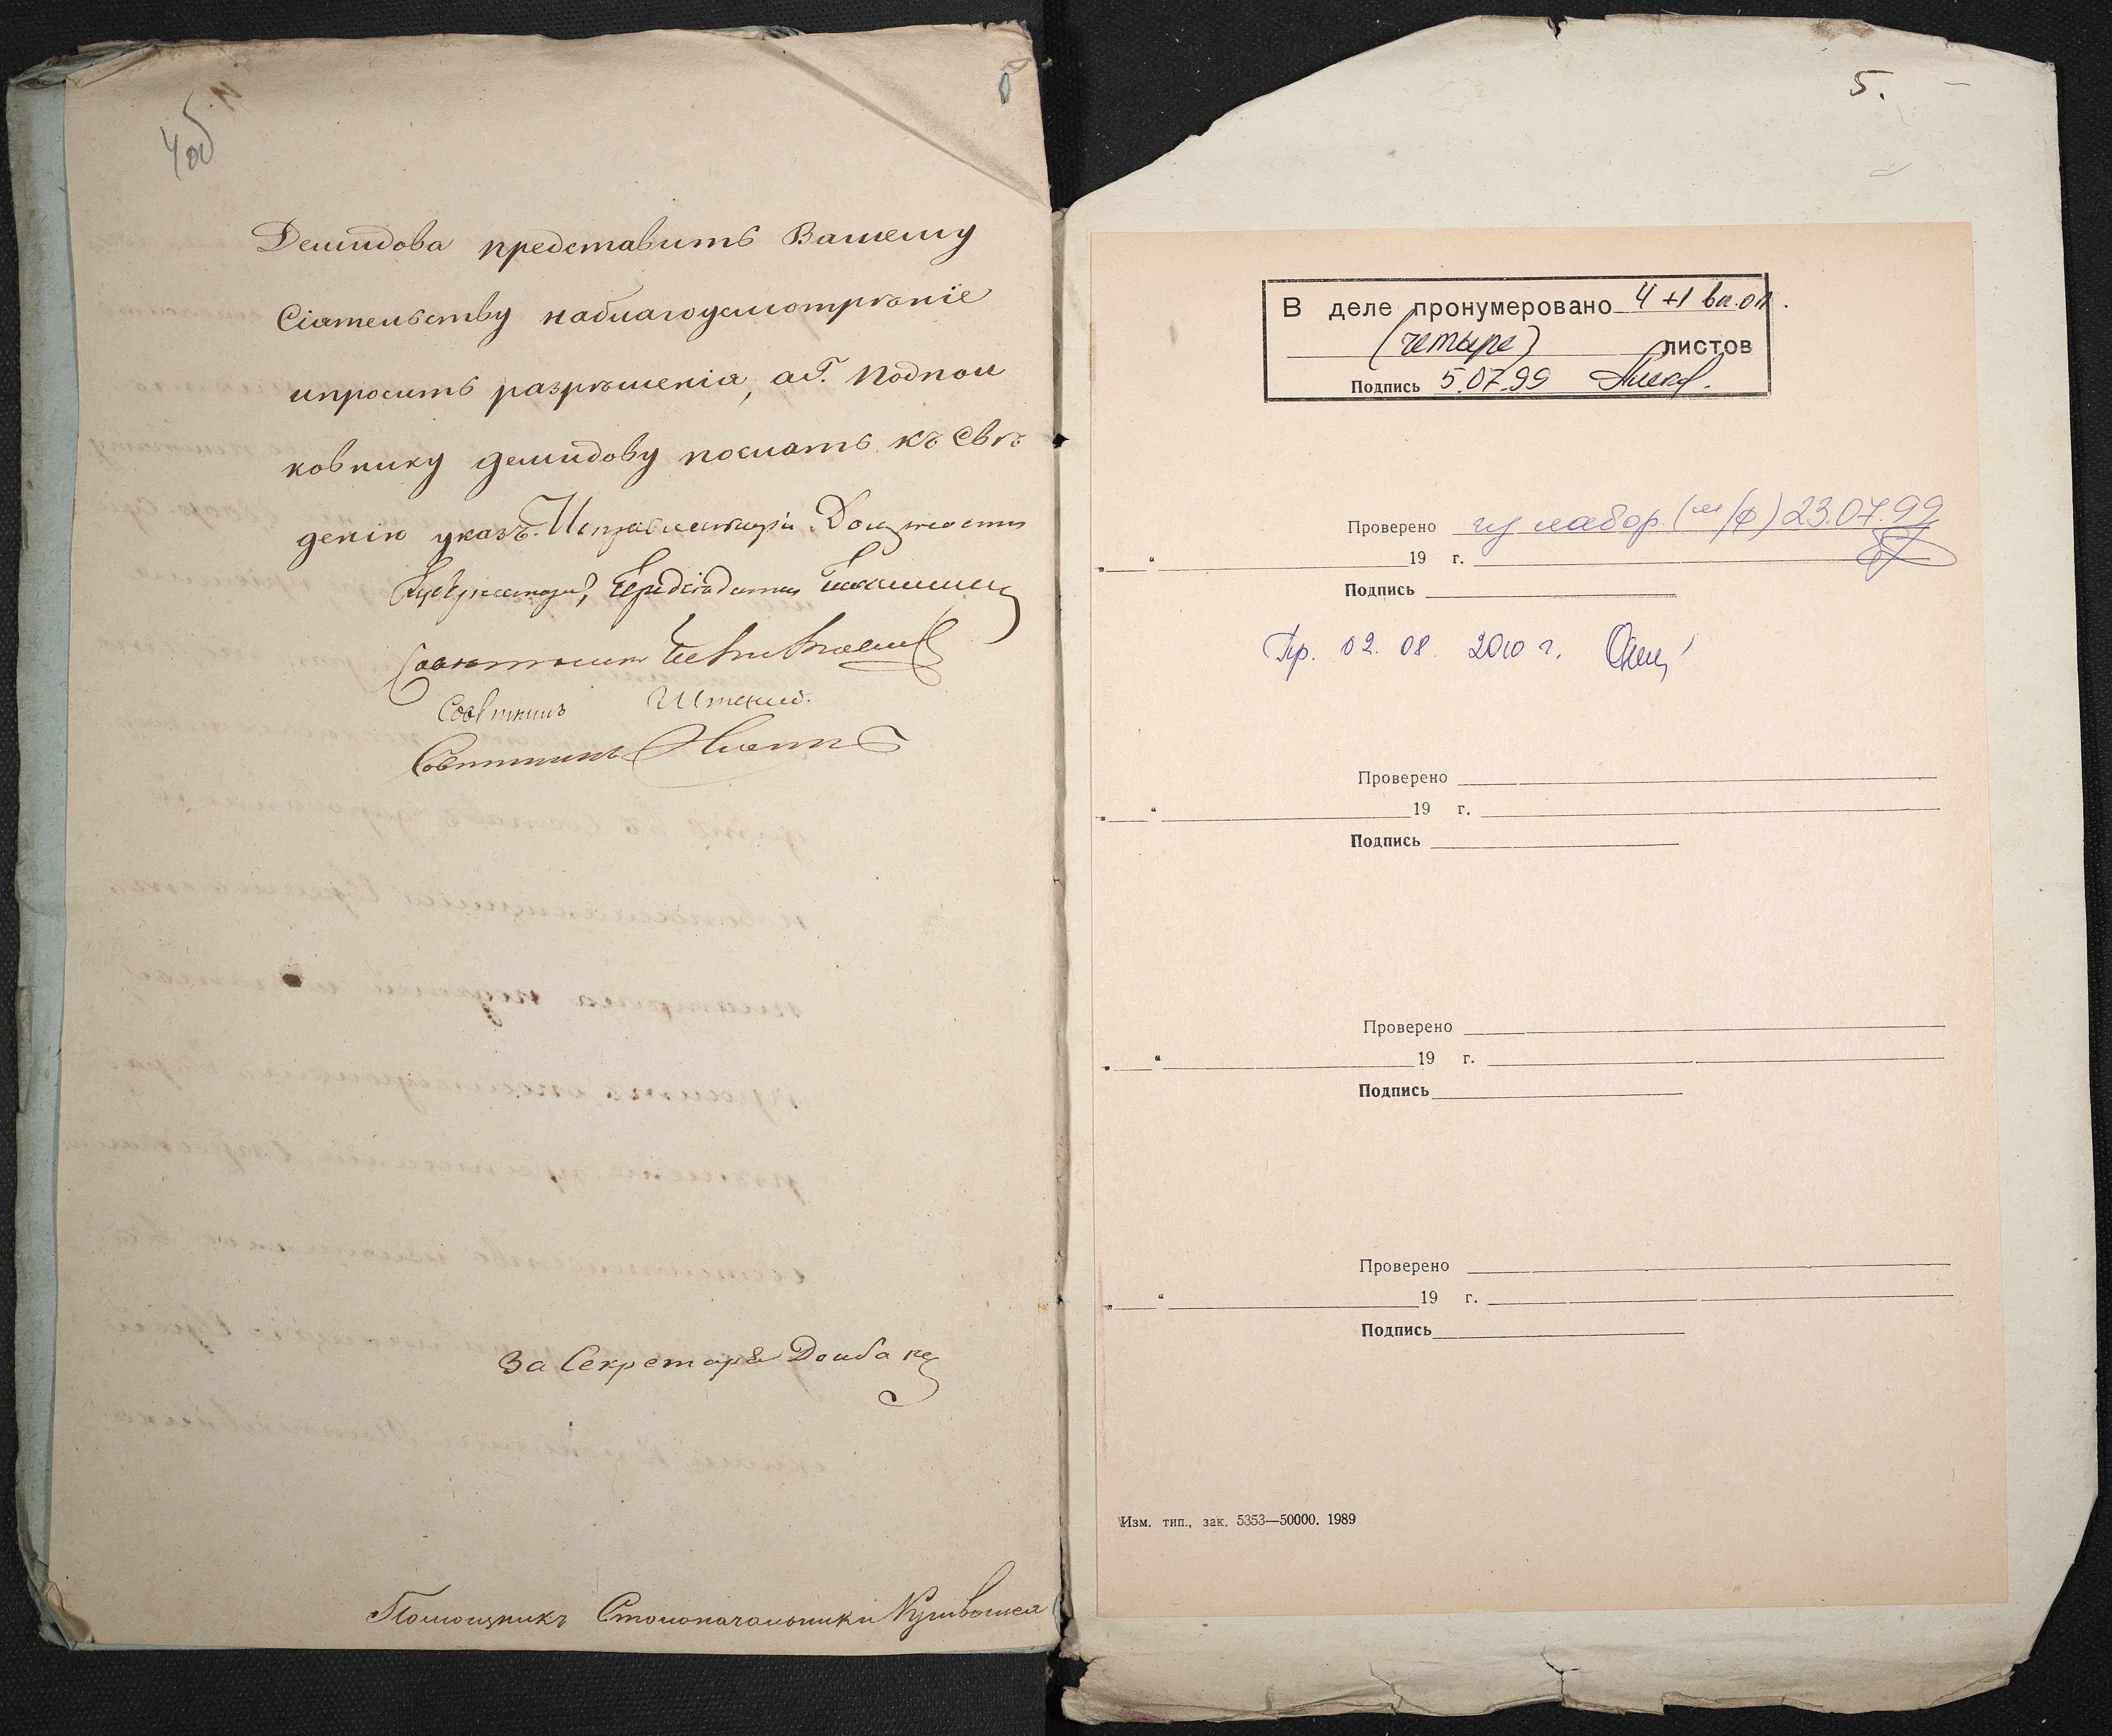 4об
Демидова представить Вашему
Сіятельству наблагоусмотрѣніе
ипросить разрѣшенія, аГ. Подпол
ковнику демидову послать къ Свѣ
денію указъ. Исправляющій Должность
Предсѣдатель
Совѣтникъ
Совѣтникъ
Совѣтникъ
За Секретаря
Помощникъ Столоначальника
5.
В деле пронумеровано 4 +1 вн.оп.
(четыре) листов
Подпись 5.07.99
Проверено 23.07.99
„ “ 19 г.
Подпись
Пр. 02. 08. 2010 г.
Проверено
„ “ 19 г.
Подпись
Проверено
„ “ 19 г.
Подпись
Проверено
„ “ 19 г.
Подпись
Изм. тип., зак. 5353—50000. 1989